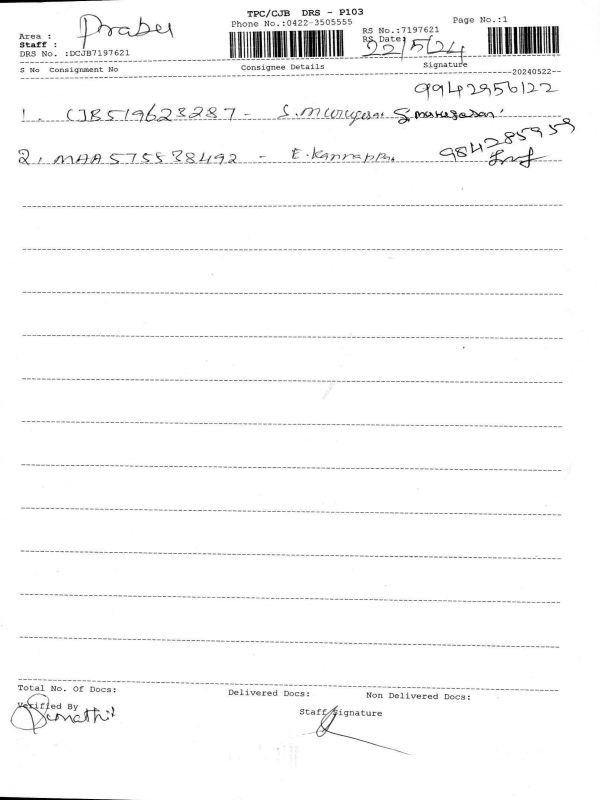 TPC/CJB DRS - P103
Phone No.:0422-3505555
Page No.:1
Area : Prabu
Staff :
DRS No. :DCJB7197621
RS No.:7197621
RS Date: 22/5/24
S No Consignment No Consignee Details Signature
--20240522--
9942956122
1. CJB519623287 - S.Murugesan S.Murugesan
2. MAA575538492 - E.Kannappan 984285959
Total No. Of Docs: Delivered Docs: Non Delivered Docs:
Verified By Staff Signature